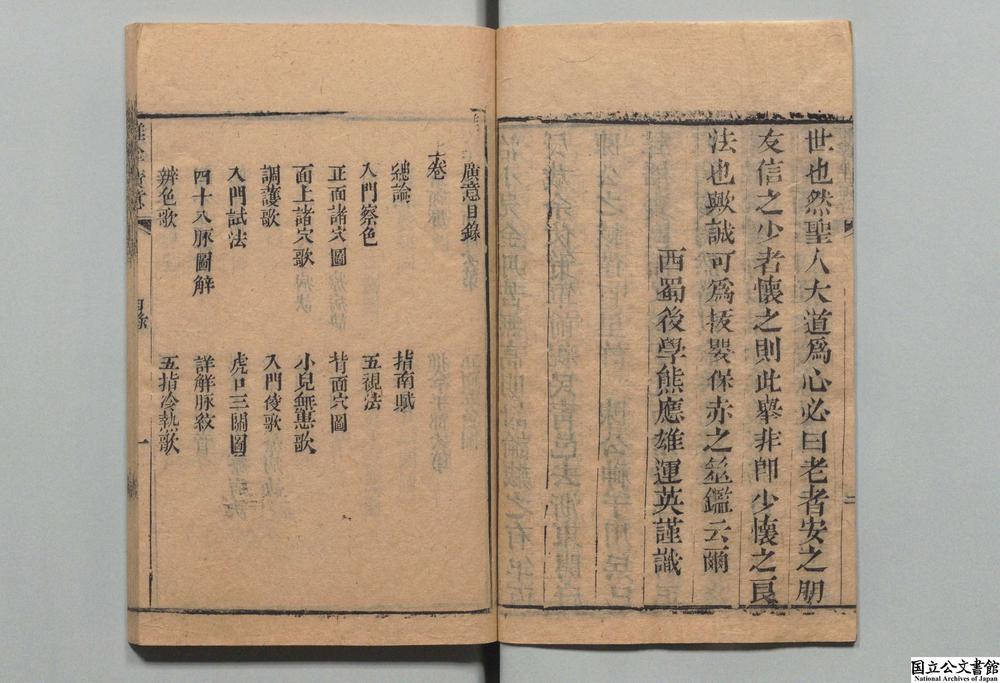 世也然聖人大道爲心必曰老者安之朋
友信之少者懷之則此擧非卽少懷之良
法也歟誠可爲援嬰保赤之筮鑑云爾
西蜀後學熊應雄運英謹識
二
廣意目錄
上卷
總論
指南賦
入門察色
五視法
正面諸穴圖
背面穴圖
面上諸穴歌
小兒無患歌
調護歌
入門候歌
入門試法
虎口三關圖
四十八脉圖解
詳解脉紋
辨色歌
五指冷熱歌
廣意
目錄
一
国立公文書館
National Archives of Japan